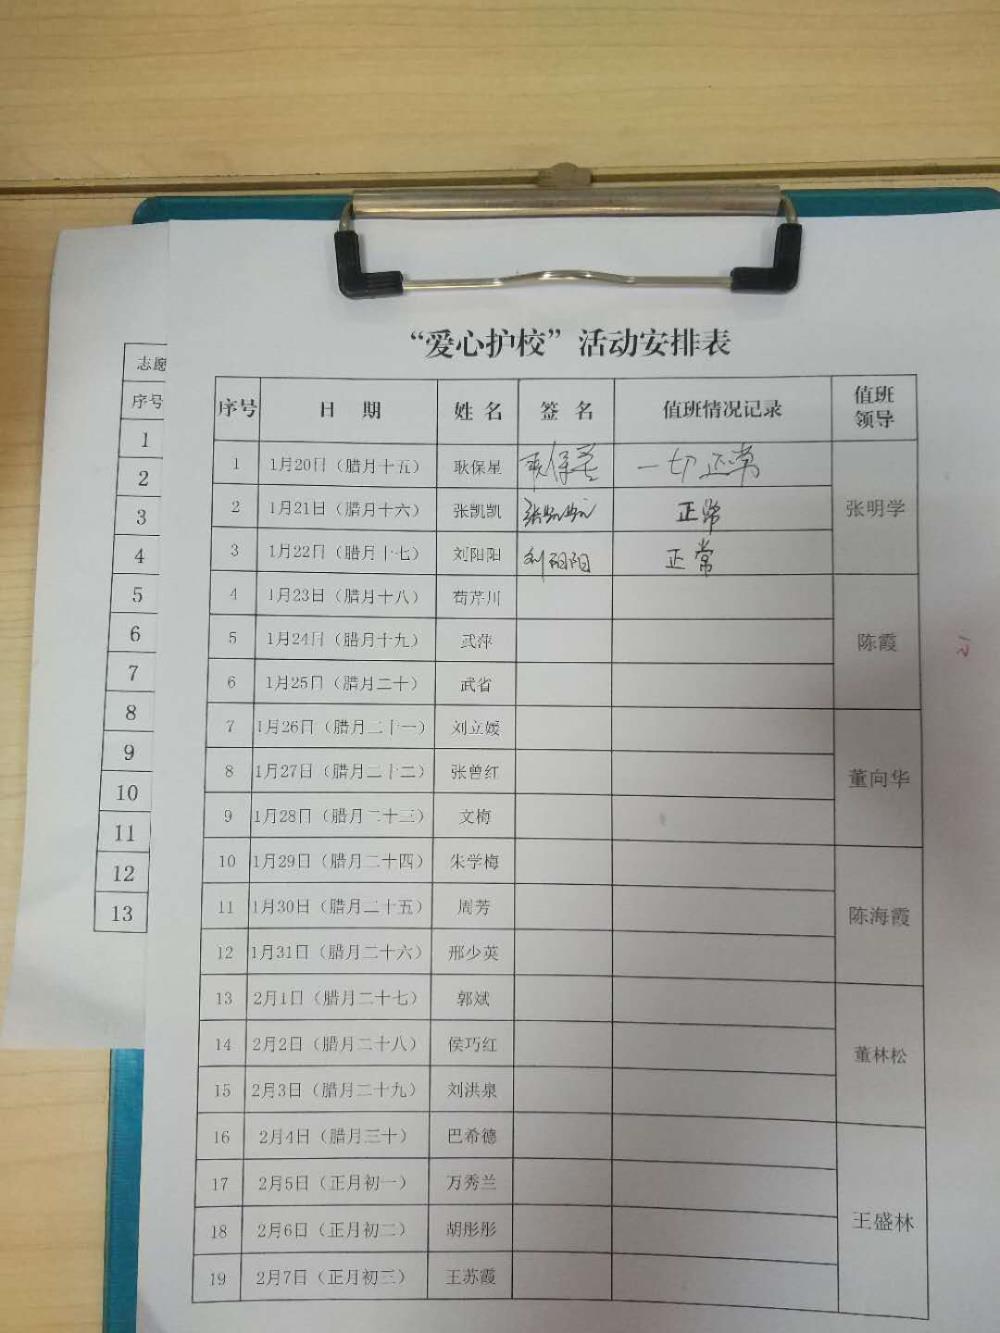 “爱心护校”活动安排表
志愿
序号
1
2
3
4
5
6
7
8
9
10
11
12
13
序号 日 期 姓 名 签 名 值班情况记录 值班领导
1 1月20日（腊月十五） 耿保星 耿保星 一切正常 张明学
2 1月21日（腊月十六） 张凯凯 张凯凯 正常
3 1月22日（腊月十七） 刘阳阳 刘阳阳 正常
4 1月23日（腊月十八） 荀芹川 陈霞
5 1月24日（腊月十九） 武萍
6 1月25日（腊月二十） 武省
7 1月26日（腊月二十一） 刘立媛 董向华
8 1月27日（腊月二十二） 张曾红
9 1月28日（腊月二十三） 文梅
10 1月29日（腊月二十四） 朱学梅 陈海霞
11 1月30日（腊月二十五） 周芳
12 1月31日（腊月二十六） 邢少英
13 2月1日（腊月二十七） 郭斌 董林松
14 2月2日（腊月二十八） 侯巧红
15 2月3日（腊月二十九） 刘洪泉
16 2月4日（腊月三十） 巴希德 王盛林
17 2月5日（正月初一） 万秀兰
18 2月6日（正月初二） 胡彤彤
19 2月7日（正月初三） 王苏霞